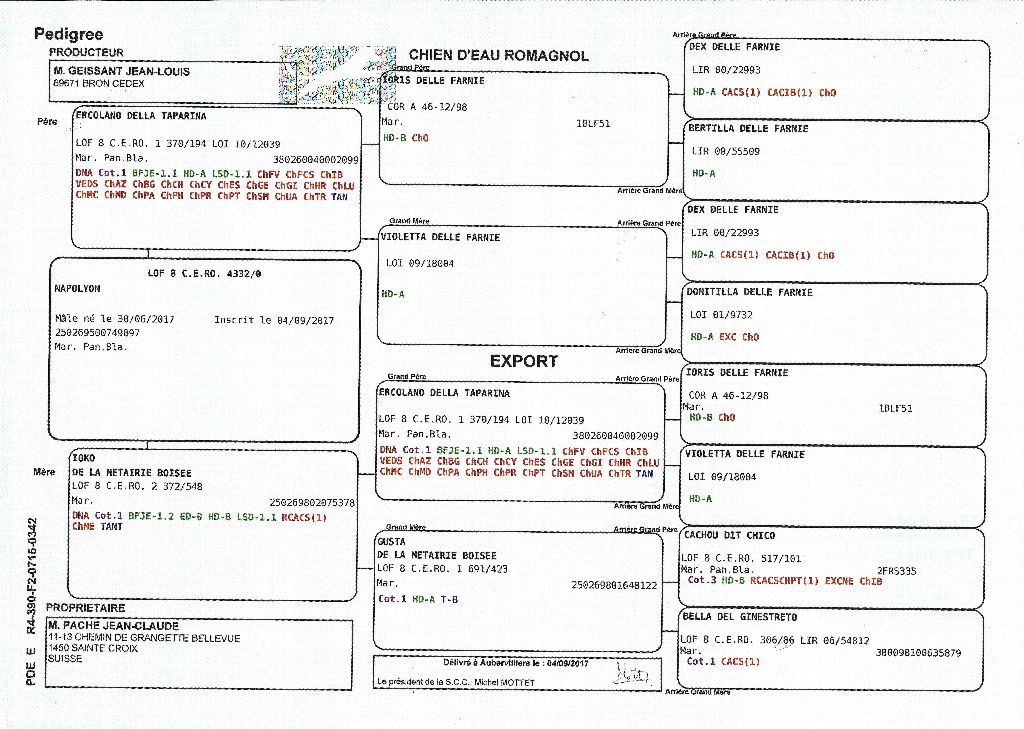 Pedigree
PRODUCTEUR
M. GEISSANT JEAN-LOUIS
69671 BRON CEDEX
CHIEN D'EAU ROMAGNOL
Père
ERCOLANO DELLA TAPARINA
LOF 8 C.E.RO. 1 370/194 LOI 10/12039
Mar. Pan.Bla. 380260040002099
DNA Cot.1 BFJE-1.1 HD-A LSD-1.1 ChFV ChFCS ChIB
VEDS ChAZ ChBG ChCH ChCY ChES ChGE ChGI ChHR ChLU
ChMC ChMD ChPA ChPH ChPR ChPT ChSM ChUA ChTR TAN
LOF 8 C.E.RO. 4332/0
NAPOLYON
Mâle né le 30/06/2017 Inscrit le 04/09/2017
250269500749097
Mar. Pan.Bla.
Mère
IOKO
DE LA METAIRIE BOISEE
LOF 8 C.E.RO. 2 372/548
Mar. 250269802075378
DNA Cot.1 BFJE-1.2 ED-0 HD-B LSD-1.1 RCACS(1)
ChME TANT
PROPRIETAIRE
M. PACHE JEAN-CLAUDE
11-13 CHEMIN DE GRANGETTE BELLEVUE
1450 SAINTE CROIX
SUISSE
PDE E R4-390-F2-0716-0342
Grand Père
IORIS DELLE FARNIE
COR A 46-12/98
Mar. 1BLF51
HD-B ChO
Grand Mère
VIOLETTA DELLE FARNIE
LOI 09/18004
HD-A
EXPORT
Grand Père
ERCOLANO DELLA TAPARINA
LOF 8 C.E.RO. 1 370/194 LOI 10/12039
Mar. Pan.Bla. 380260040002099
DNA Cot.1 BFJE-1.1 HD-A LSD-1.1 ChFV ChFCS ChIB
VEDS ChAZ ChBG ChCH ChCY ChES ChGE ChGI ChHR ChLU
ChMC ChMD ChPA ChPH ChPR ChPT ChSM ChUA ChTR TAN
Grand Mère
GUSTA
DE LA METAIRIE BOISEE
LOF 8 C.E.RO. 1 691/423
Mar. 250269801648122
Cot.1 HD-A T-B
Délivré à Aubervilliers le : 04/09/2017
Le président de la S.C.C. Michel MOTTET
Arrière Grand Père
DEX DELLE FARNIE
LIR 00/22993
HD-A CACS(1) CACIB(1) ChO
BERTILLA DELLE FARNIE
LIR 00/55509
HD-A
Arrière Grand Mère
Arrière Grand Père
DEX DELLE FARNIE
LIR 00/22993
HD-A CACS(1) CACIB(1) ChO
DONITILLA DELLE FARNIE
LOI 01/9732
HD-A EXC ChO
Arrière Grand Mère
Arrière Grand Père
IORIS DELLE FARNIE
COR A 46-12/98
Mar. 1BLF51
HD-B ChO
VIOLETTA DELLE FARNIE
LOI 09/18004
HD-A
Arrière Grand Mère
Arrière Grand Père
CACHOU DIT CHICO
LOF 8 C.E.RO. 517/101
Mar. Pan.Bla. 2FRS335
Cot.3 HD-B RCACSCHPT(1) EXCNE ChIB
BELLA DEL GINESTRETO
LOF 8 C.E.RO. 306/06 LIR 06/54812
Mar. 380098100635879
Cot.1 CACS(1)
Arrière Grand Mère